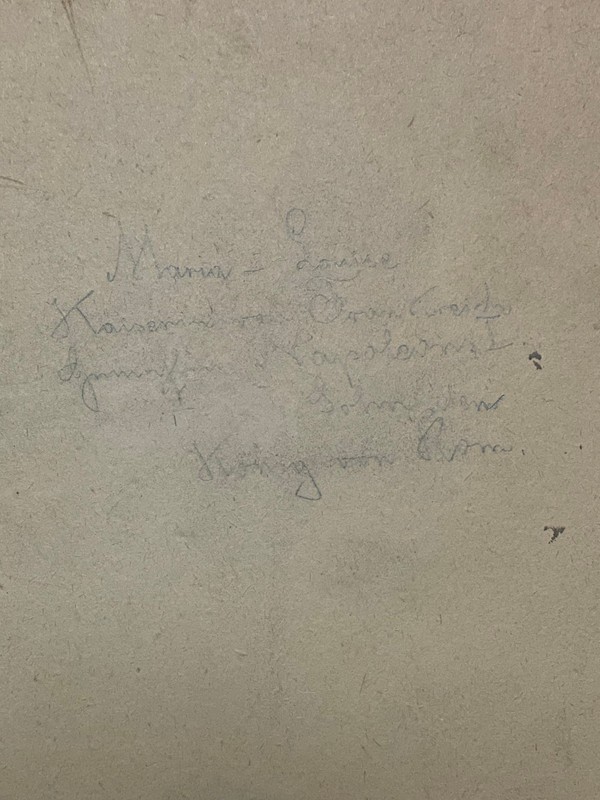 Maria - Louise
Kaiserin von Frankreich
Gemahlin Napoleons I
mit Sohn, dem
König von Rom.